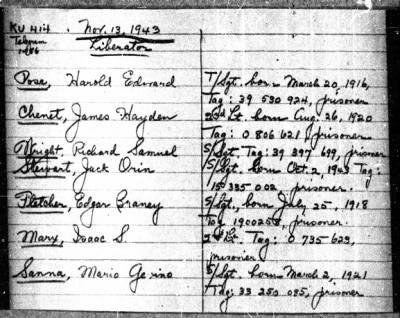 KU 414 . Nov. 13, 1943
Telegram Liberator
Pose, Harold Edward T/Sgt. born March 20, 1916,
Tag: 39 530 924, prisoner
Chenet, James Hayden 2nd Lt. born Aug. 26, 1920
Tag: 0 806 621, prisoner
Wright, Richard Samuel S/Sgt. Tag: 39 397 699, prisoner
Stewart, Jack Orin S/Sgt. born Oct. 2, 1923 Tag:
prisoner.
Fletcher, Edgar Braney S/Sgt. born July 25, 1918
Tag 1900258, prisoner.
Marx, Isaac S. 2nd Lt. Tag: 0 735 623,
prisoner
Sanna, Mario S/Sgt. born March 2, 1921
Tag: 33 250 085, prisoner